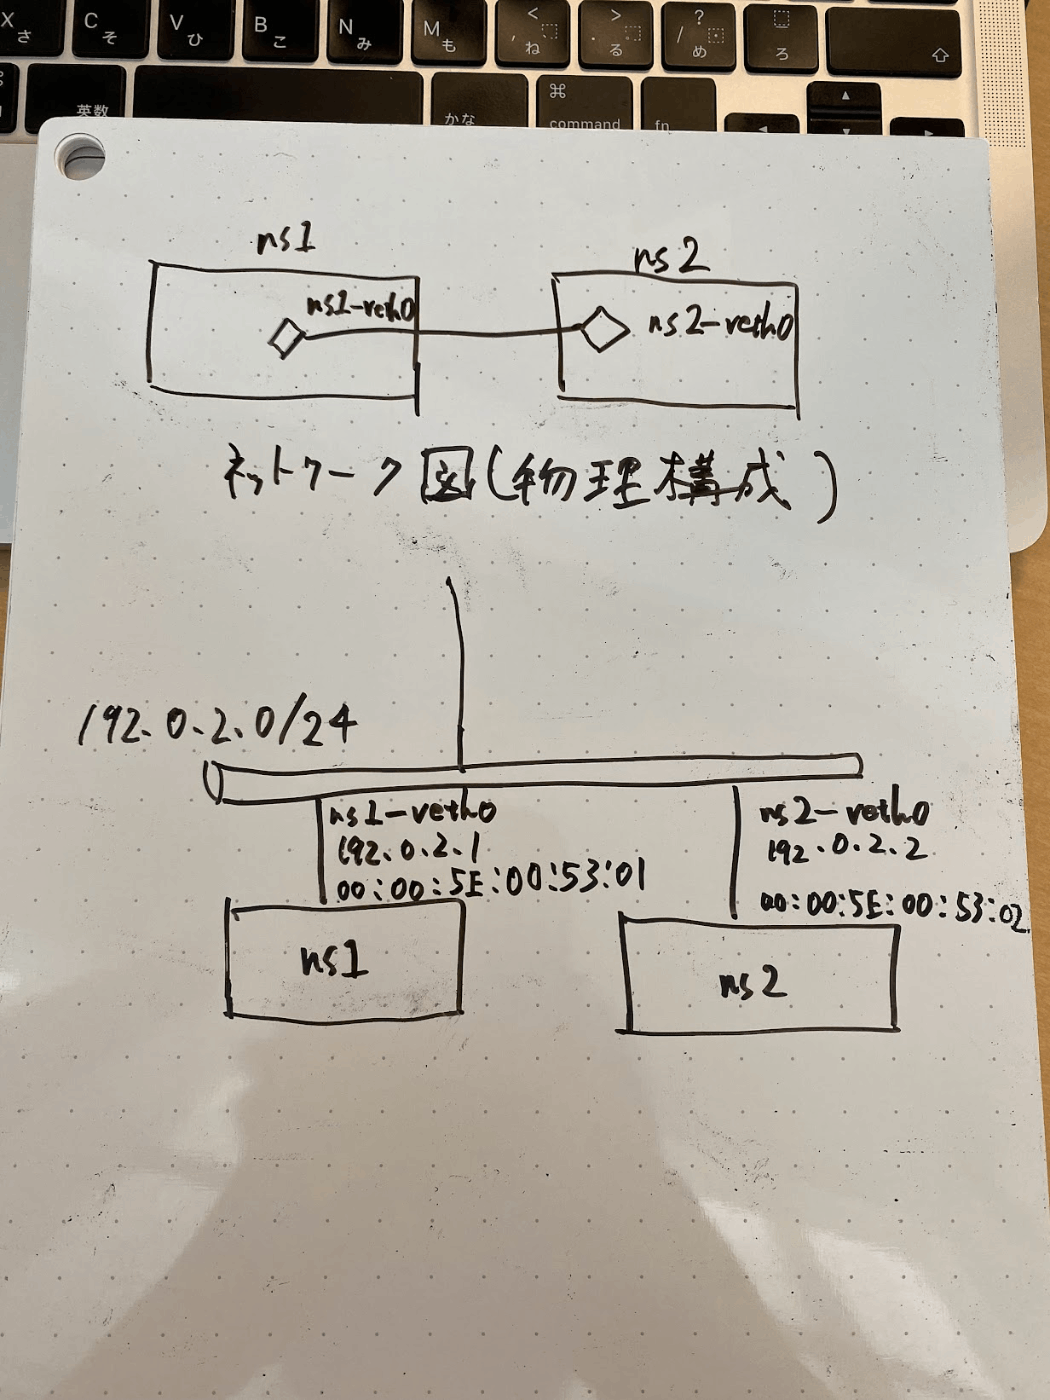 X さ
C そ
V ひ
B こ
N み
M も
< , ね
> . る
? / め
ろ
英数
かな
⌘ command
fn
ns1
ns2
ns1-veth0
ns2-veth0
ネットワーク図(物理構成)
192.0.2.0/24
ns1-veth0
192.0.2.1
00:00:5E:00:53:01
ns2-veth0
192.0.2.2
00:00:5E:00:53:02
ns1
ns2